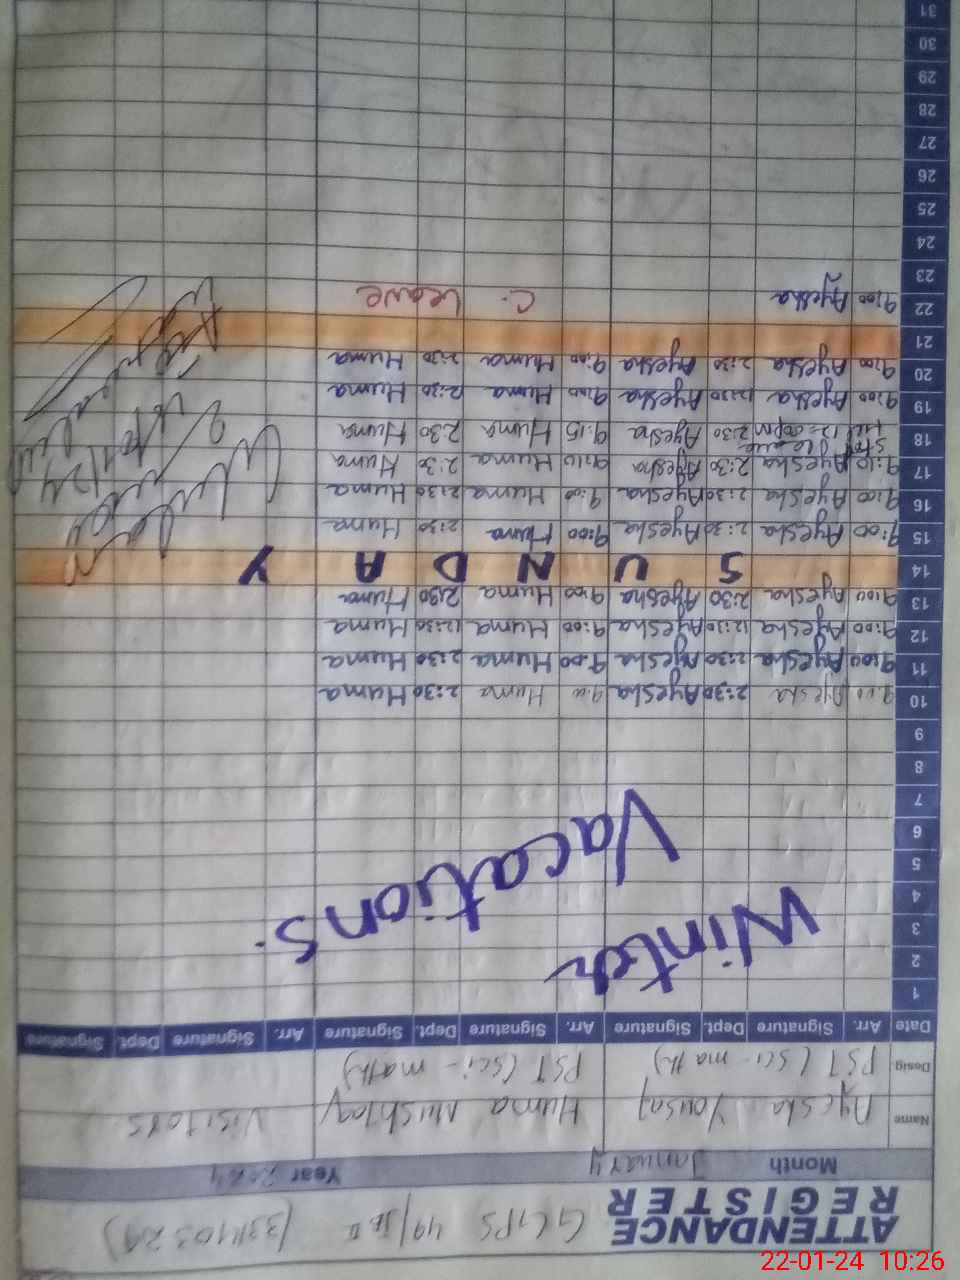 ATTENDANCE REGISTER GGPS 49/JB II
Month January Year 2024
Name Ayesha Yousaf Huma Mushtaq Visitors
Desig. PST (sci-math) PST (sci-math)
Date Arr. Signature Dept. Signature Arr. Signature Dept. Signature Arr. Signature Dept. Signature
1
2
3
4
5
6
7
8
9
Winter
Vacations.
10 9:00 Ayesha 2:30 Ayesha 9:00 Huma 2:30 Huma
11 9:00 Ayesha 2:30 Ayesha 9:00 Huma 2:30 Huma
12 9:00 Ayesha 12:30 Ayesha 9:00 Huma 12:30 Huma
13 9:00 Ayesha 2:30 Ayesha 9:00 Huma 2:30 Huma
14 SUNDAY
15 9:00 Ayesha 2:30 Ayesha 9:00 Huma 2:30 Huma
16 9:00 Ayesha 2:30 Ayesha 9:00 Huma 2:30 Huma
17 9:10 Ayesha 2:30 Ayesha 9:10 Huma 2:30 Huma
18 leave till 12:00pm 2:30 Ayesha 9:15 Huma 2:30 Huma
19 9:00 Ayesha 12:30 Ayesha 9:00 Huma 12:30 Huma
20 9:00 Ayesha 2:30 Ayesha 9:00 Huma 2:30 Huma
21
22 9:00 Ayesha C. Leave
23
24
25
26
27
28
29
30
31
22-01-24 10:26